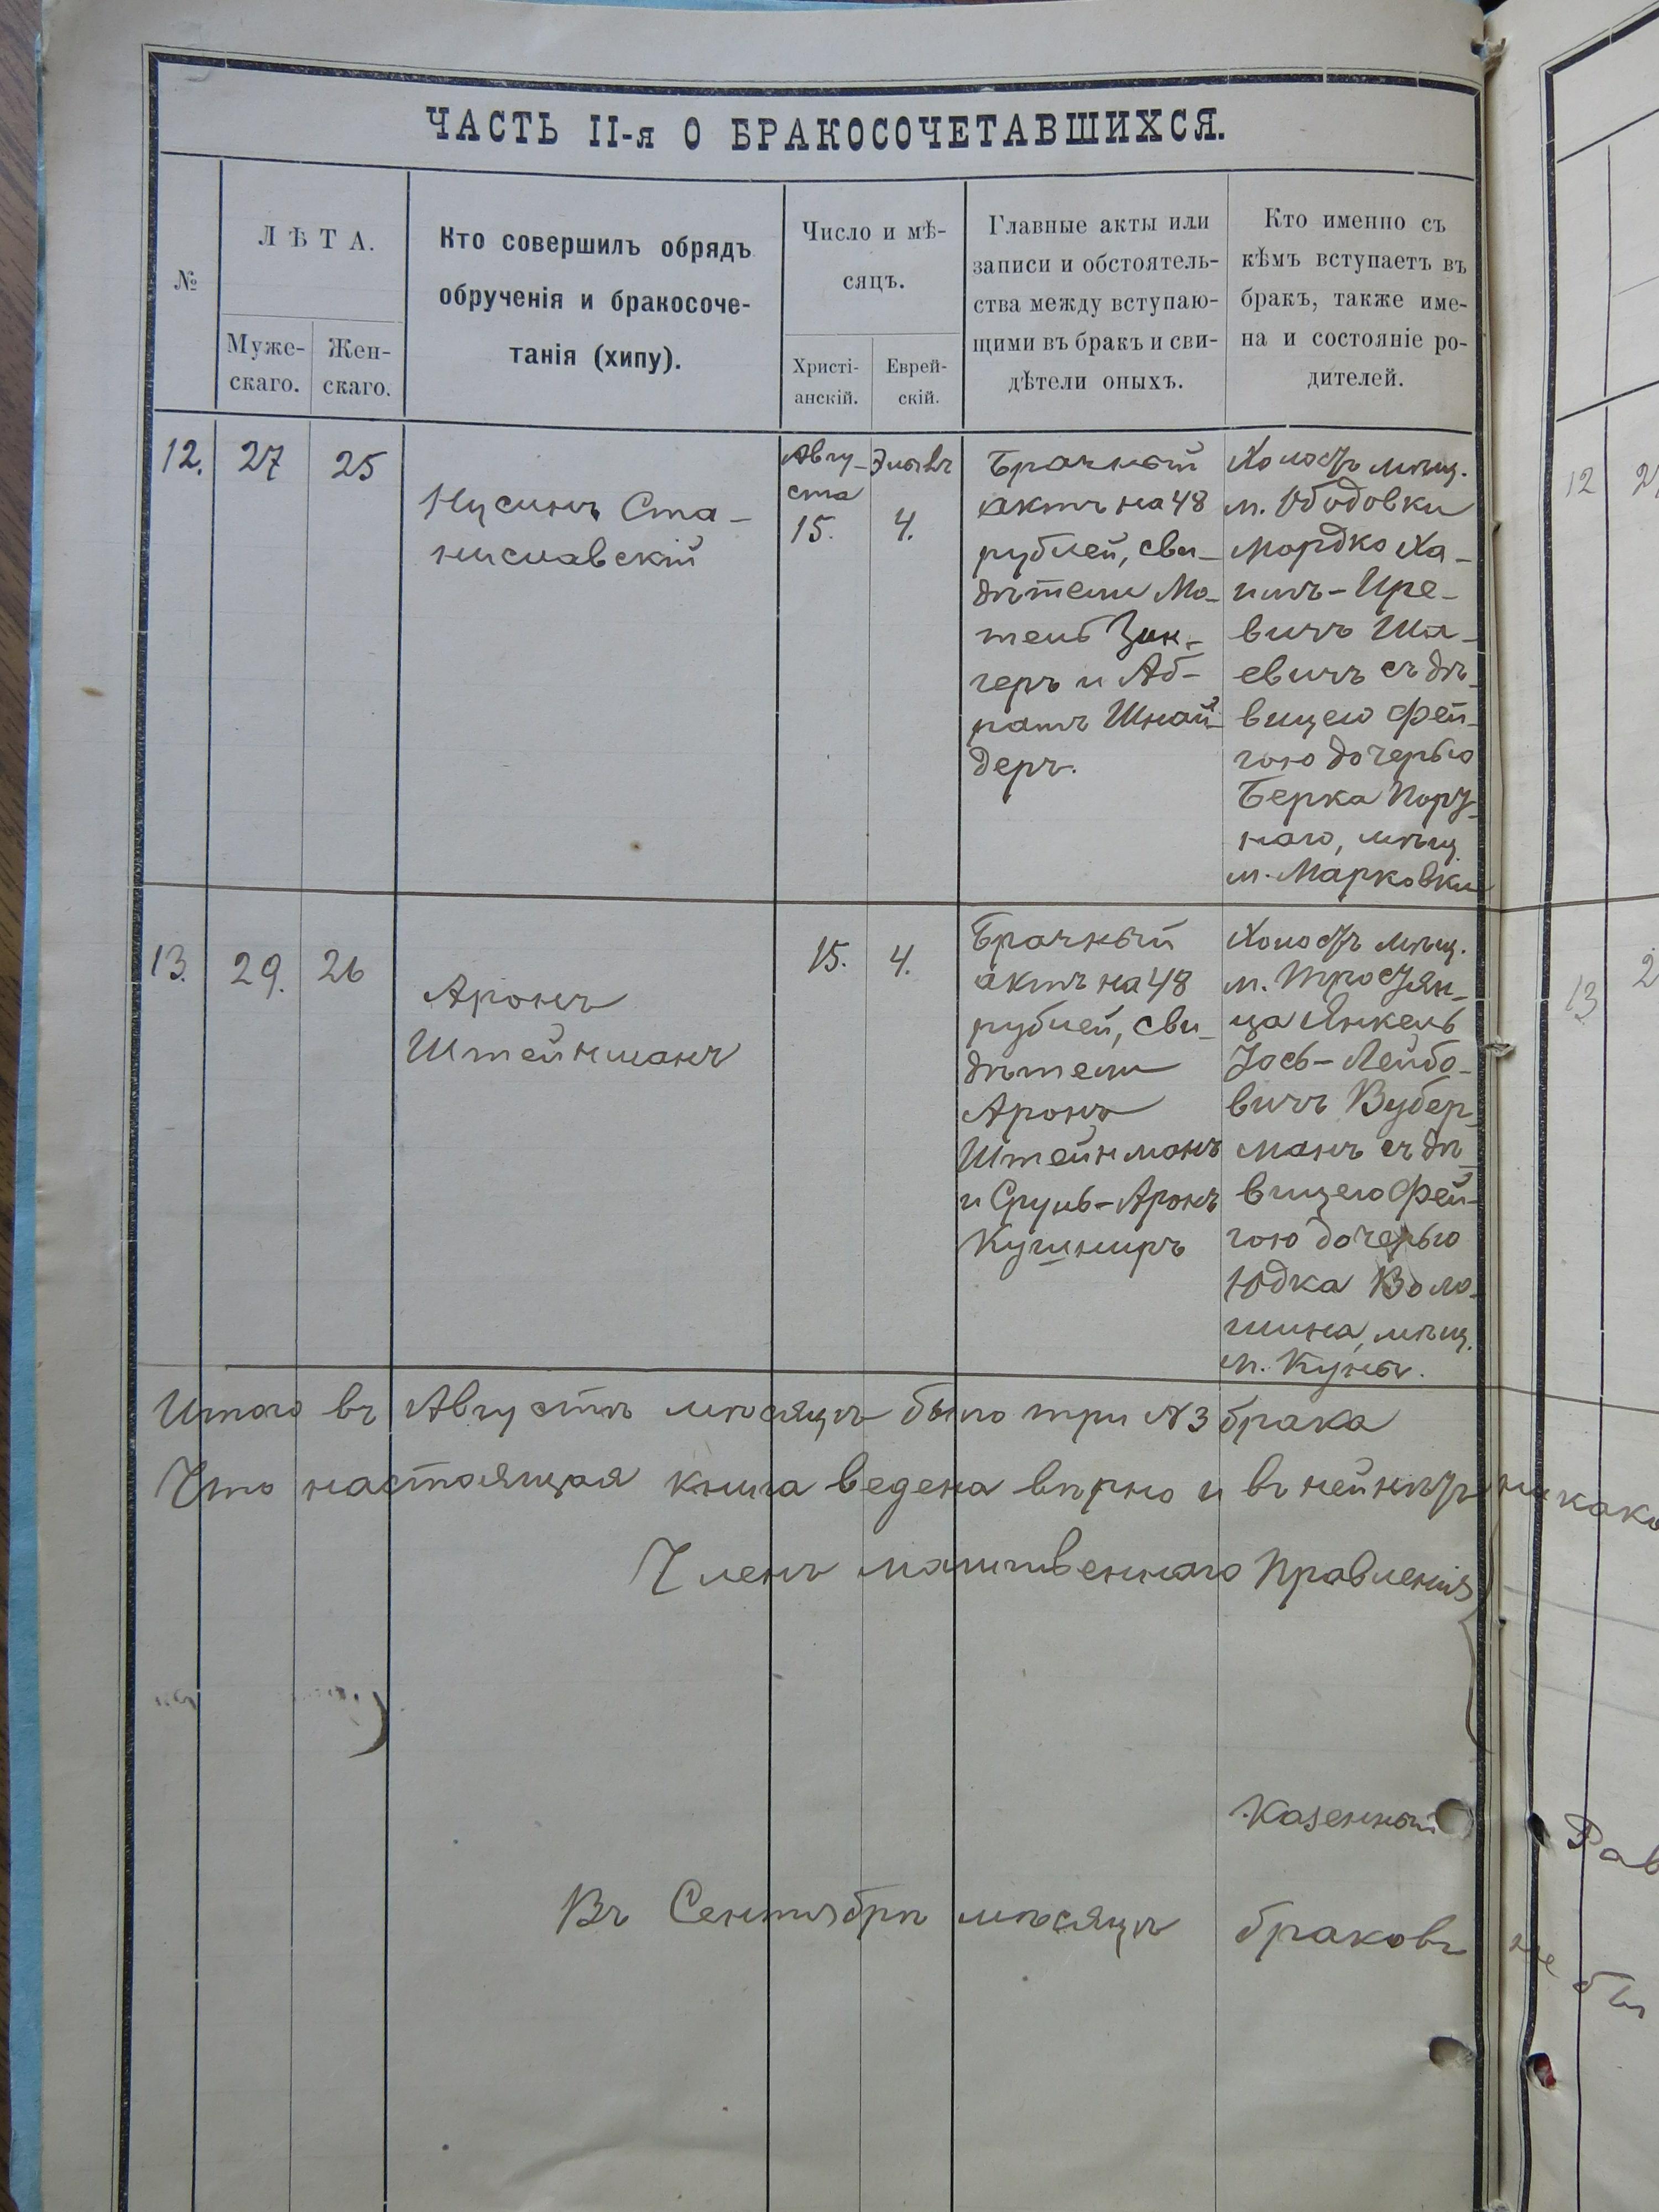 ЧАСТЬ II-я О БРАКОСОЧЕТАВШИХСЯ.
№
ЛѢТА.
Муже-
скаго.
Жен-
скаго.
Кто совершилъ обрядъ
обрученія и бракосоче-
танія (хипу).
Число и мѣ-
сяцъ.
Христі-
анскій.
Еврей-
скій.
Главные акты или
записи и обстоятель-
ства между вступаю-
щими въ бракъ и сви-
дѣтели оныхъ.
Кто именно съ
кѣмъ вступаетъ въ
бракъ, также име-
на и состояніе ро-
дителей.
12.
27
25
Нусинъ Ста-
ниславскій
Авгу-
ста
15.
Элывъ
4.
Брачный
актъ на 48
рублей, сви-
дѣтели Мо-
тель Зин-
геръ и Аб-
рамъ Шнай-
деръ.
Холостъ мѣщ.
м. Ободовки
Мордко Ха-
имъ-Ире-
вичъ Ша-
евичъ съ дѣ-
вицею Фей-
гою дочерью
Берка Порт-
наго, мѣщ.
м. Марковки
13.
29.
26
Аронъ
Штейнманъ
15.
4.
Брачный
актъ на 48
рублей, сви-
дѣтели
Аронъ
Штейнманъ
и Сруль-Аронъ
Кушниръ
Холостъ мѣщ.
м. Тростян-
ца Янкель
Іось-Лейбо-
вичъ Вубер-
манъ съ дѣ-
вицею Фей-
гою дочерью
Юдка Воло-
шина, мѣщ.
м. Куны.
Итого въ Августѣ мѣсяцѣ было три №3 брака
Что настоящая книга ведена вѣрно и въ ней нѣтъ ни како
Членъ молитвеннаго Правленія
Казенный
Рав
Въ Сентябрѣ мѣсяцѣ браковъ не бы
12
13
2